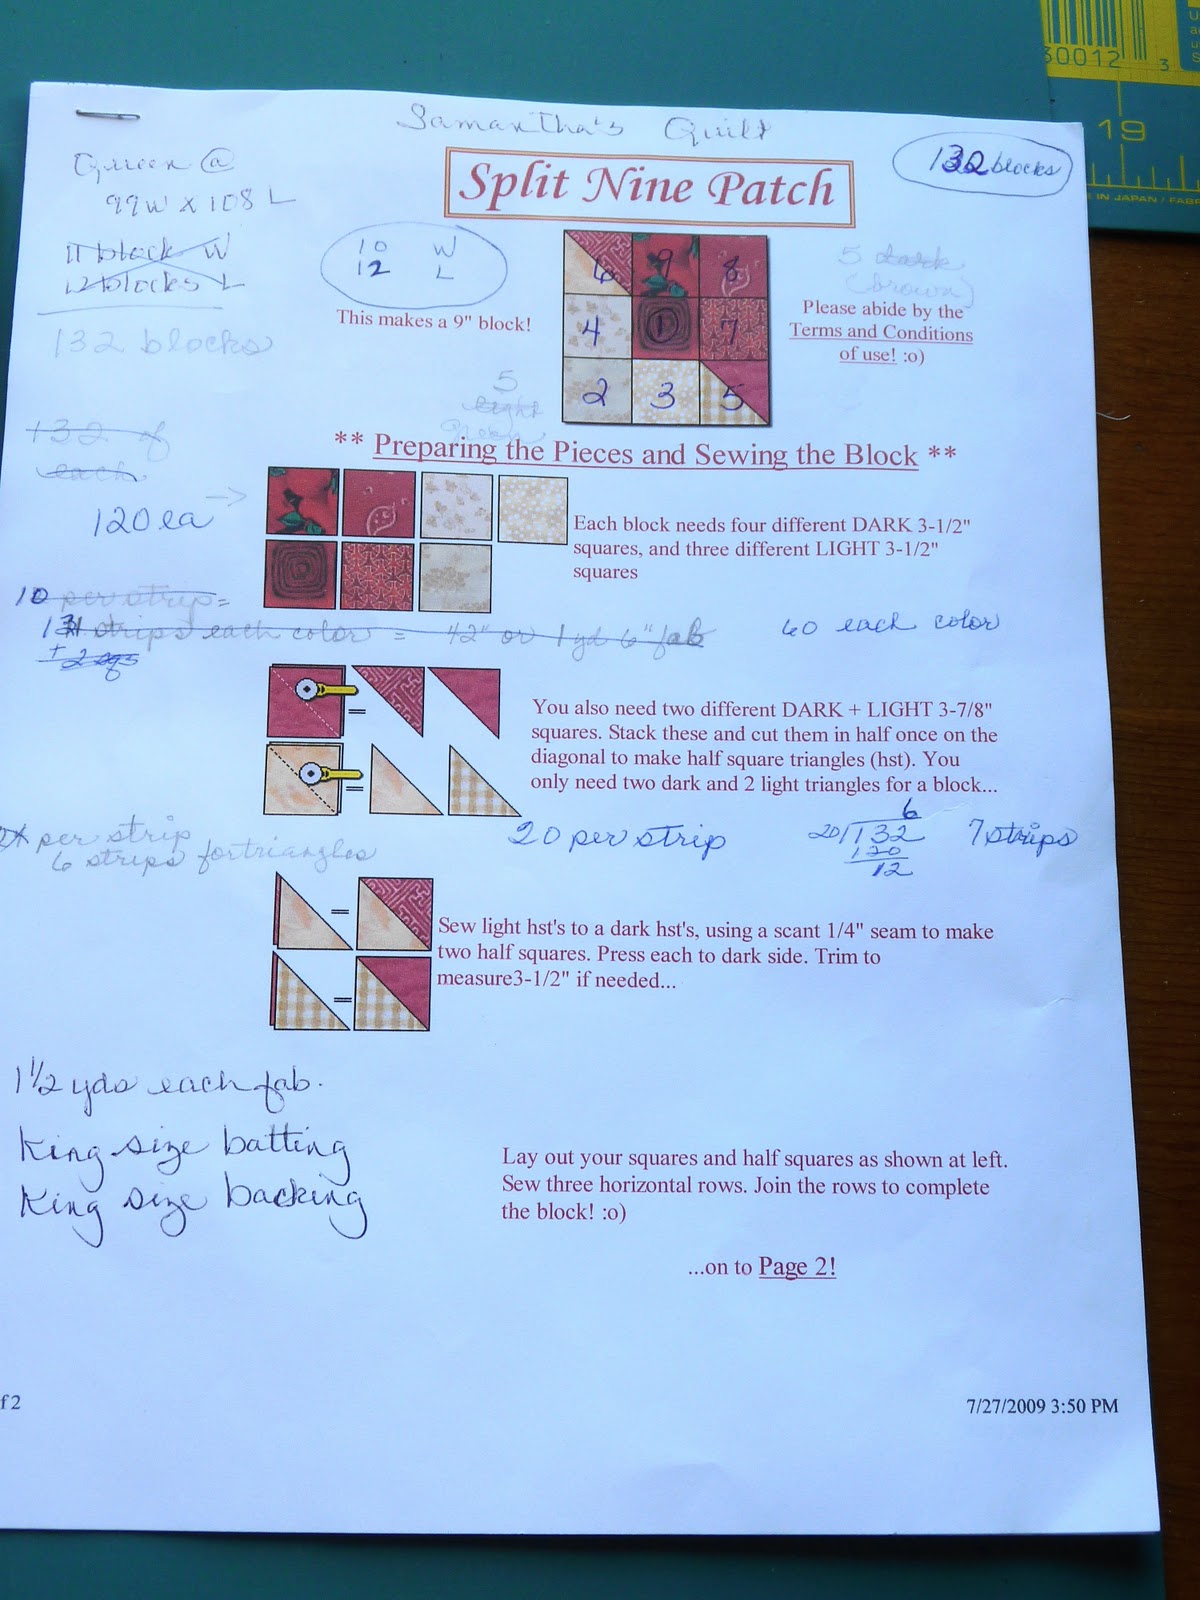 30012 3
19
IN JAPAN / FABR
Samantha's Quilt
Queen @
99W X 108 L
11 block W
12 blocks L
132 blocks
Split Nine Patch
132 blocks
10 W
12 L
This makes a 9" block!
6 9 8
4 1 7
2 3 5
5 dark
(brown)
Please abide by the
Terms and Conditions
of use! :o)
5
light
green
132 of
each
120 ea
** Preparing the Pieces and Sewing the Block **
Each block needs four different DARK 3-1/2"
squares, and three different LIGHT 3-1/2"
squares
10 per strip =
strips each color = 42" or 1 yd 6" fab
60 each color
You also need two different DARK + LIGHT 3-7/8"
squares. Stack these and cut them in half once on the
diagonal to make half square triangles (hst). You
only need two dark and 2 light triangles for a block...
per strip
6 strips for triangles
20 per strip
6
20 132
120
12
7 strips
Sew light hst's to a dark hst's, using a scant 1/4" seam to make
two half squares. Press each to dark side. Trim to
measure3-1/2" if needed...
1 1/2 yds each fab.
King size batting
King size backing
Lay out your squares and half squares as shown at left.
Sew three horizontal rows. Join the rows to complete
the block! :o)
...on to Page 2!
f 2
7/27/2009 3:50 PM